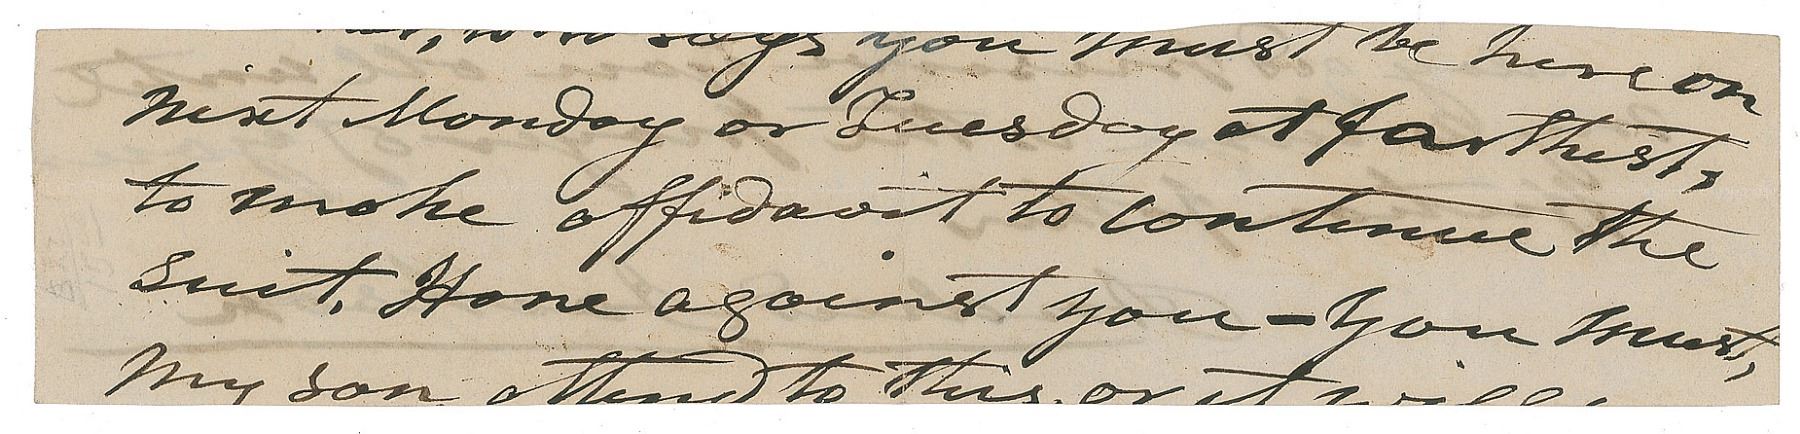 says you must be here on
next Monday or Tuesday at farthest,
to make affidavit to continue the
suit, Hone against you - You must,
my son attend to this, or it will